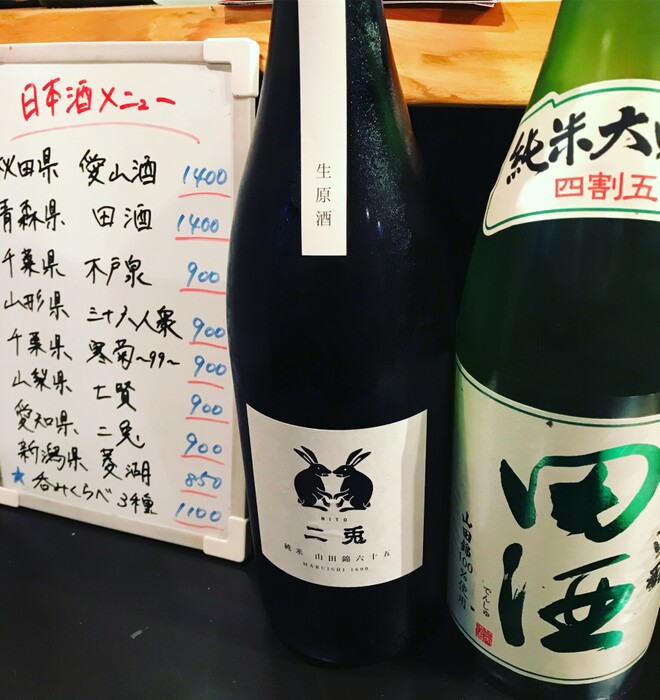 日本酒メニュー
秋田県 愛山酒 1400
青森県 田酒 1400
千葉県 木戸泉 900
山形県 三十六人衆 900
千葉県 寒菊~99~ 900
山梨県 七賢 900
愛知県 二兎 900
新潟県 菱湖 850
★ 呑みくらべ 3種 1100
生原酒
NITO
二兎
純米 山田錦六十五
MARUISHI 1690
純米大
四割五
田酒
山田錦100%使用
でんしゅ